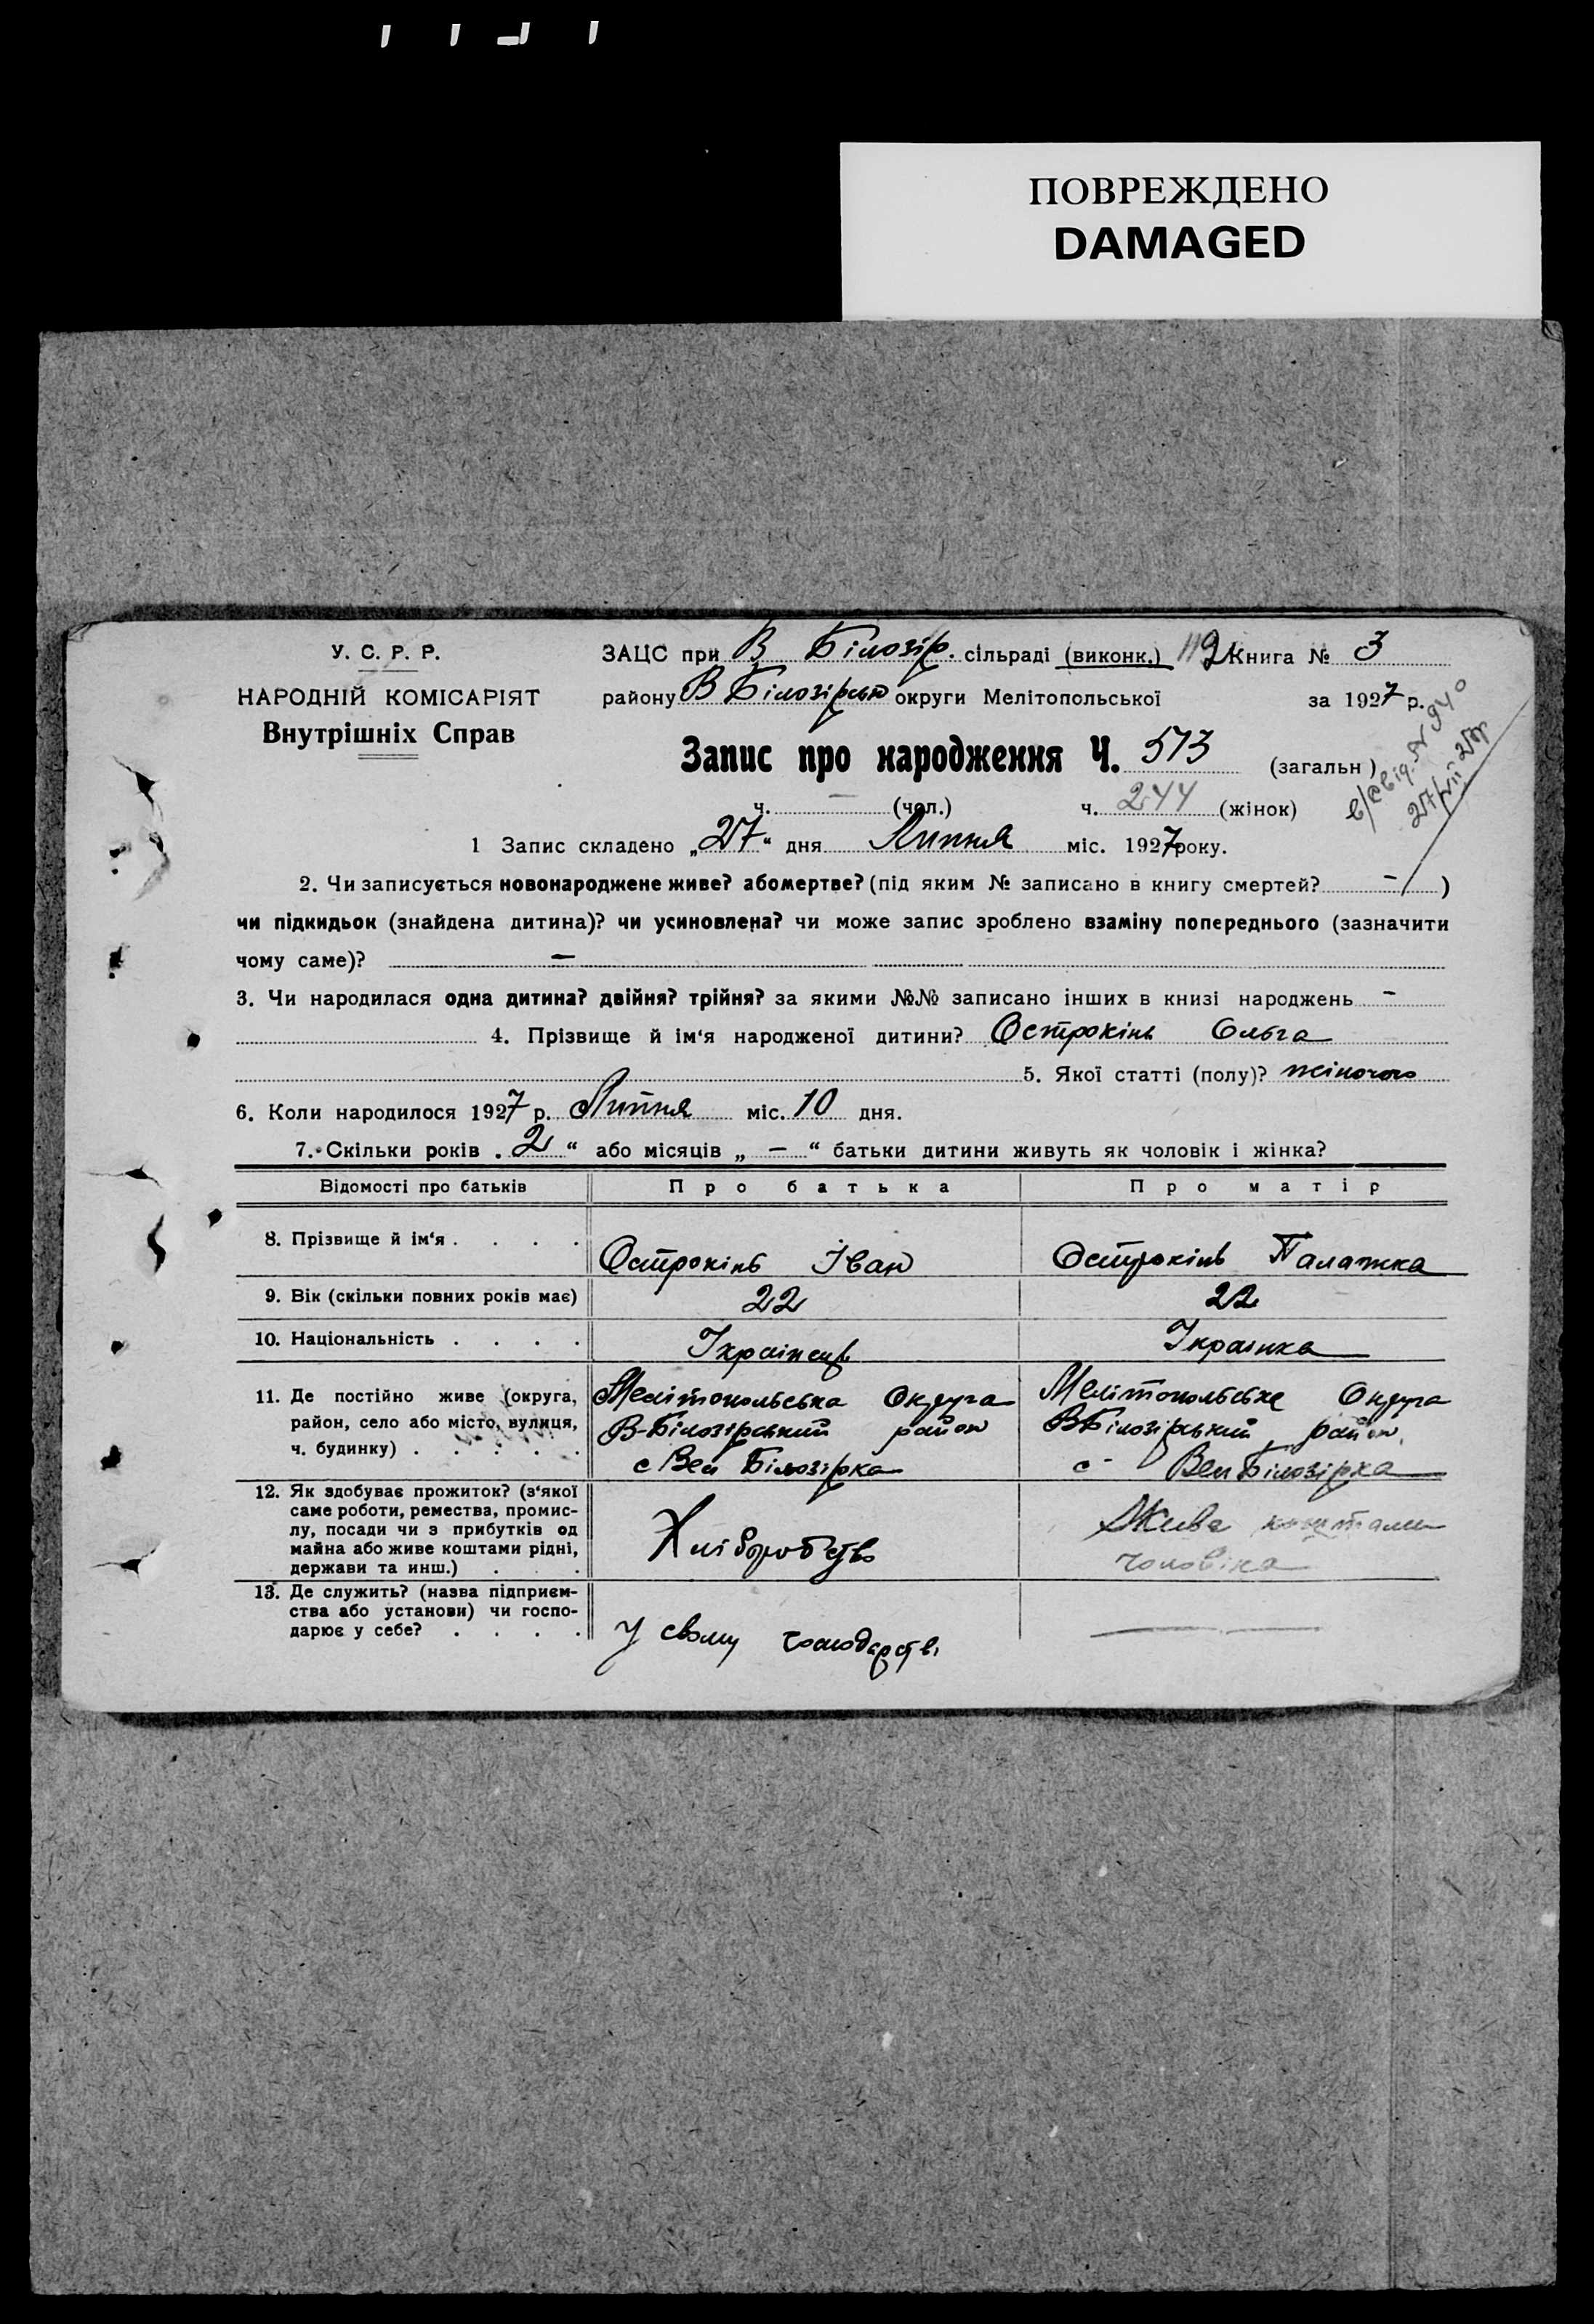 ПОВРЕЖДЕНО
DAMAGED
У. С. Р. Р.
НАРОДНІЙ КОМІСАРІЯТ
Внутрішніх Справ
ЗАЦС при В Білозір. сільраді (виконк.) 112 Книга № 3
району В Білозірськ округи Мелітопольської за 1927 р.
Запис про народження Ч. 573 (загальн)
ч. — (чол.) ч. 244 (жінок)
1 Запис складено „27“ дня Липня міс. 1927 року.
2. Чи записується новонароджене живе? або мертве? (під яким № записано в книгу смертей? — )
чи підкидьок (знайдена дитина)? чи усиновлена? чи може запис зроблено взаміну попереднього (зазначити
чому саме)? —
3. Чи народилася одна дитина? двійня? трійня? за якими №№ записано інших в книзі народжень —
4. Прізвище й ім‘я народженої дитини? Острокінь Ольга
5. Якої статті (полу)? жіночого
6. Коли народилося 1927 р. Липня міс. 10 дня.
7. Скільки років „2“ або місяців „ — “ батьки дитини живуть як чоловік і жінка?
Відомості про батьків Про батька Про матір
8. Прізвище й ім‘я . . . . Острокінь Іван Острокінь Палажка
9. Вік (скільки повних років має) 22 22
10. Національність . . . . Українець Українка
11. Де постійно живе (округа, район, село або місто, вулиця, ч. будинку) . . . . .
Мелітопольська Округа
В-Білозірський район
с Вел Білозірка
Мелітопольська Округа
ВБілозірський район
с- Вел Білозірка
12. Як здобуває прожиток? (з‘якої
саме роботи, ремества, промис-
лу, посади чи з прибутків од
майна або живе коштами рідні,
держави та инш.) . . .
Хліборобство
Живе коштами
чоловіка
13. Де служить? (назва підприєм-
ства або установи) чи госпо-
дарює у себе? . . . .
У свому господарстві